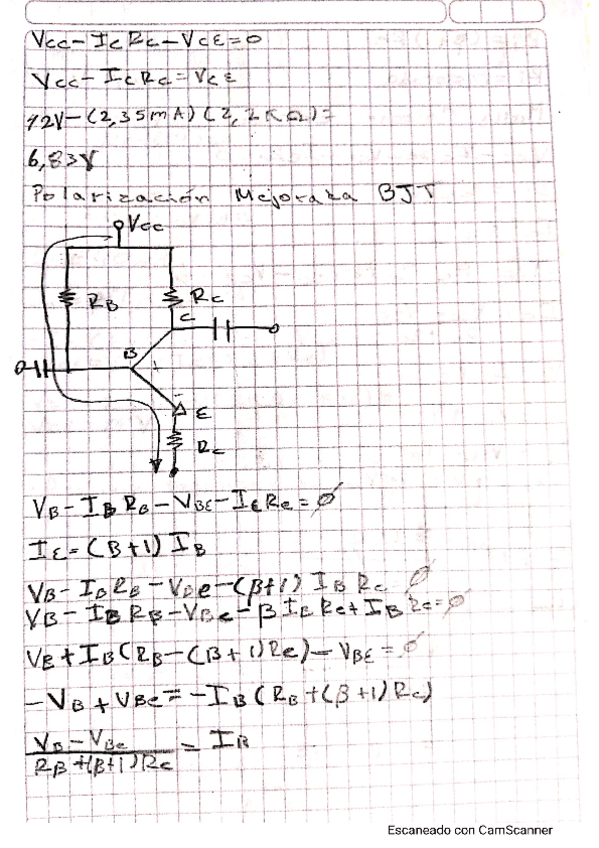 Vcc-IcRc-VcE=0
Vcc-IcRc=VcE
12V-(2,35mA)(2,2KΩ)=
6,83V
Polarización Mejorada BJT
Vcc
RB
Rc
C
B
E
Rc
VB-IBRB-VBE-IERe=0
IE=(B+1)IB
VB-IBRB-VBe-(β+1)IBRc 0
VB-IBRB-VBe-βIBRe+IBRe=0
VB+IB(RB-(B+1)Re)-VBE=0
-VB+VBe=-IB(RB+(β+1)Re)
VB-VBe = IB
RB+(β+1)Re
Escaneado con CamScanner